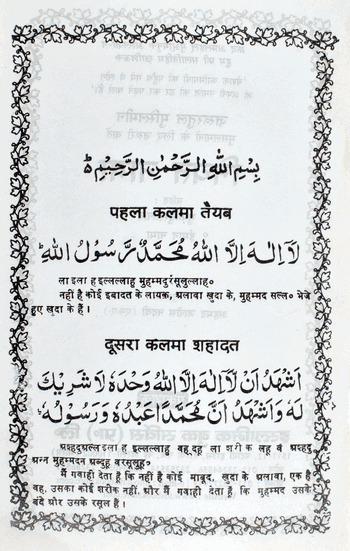 بِسْمِ اللهِ الرَّحْمٰنِ الرَّحِيْمِ ۵
पहला कलमा तैयब
لَاۤ اِلٰهَ اِلَّا اللهُ مُحَمَّدٌ رَّسُوْلُ اللهِ ؕ
ला इला ह इल्लल्लाहु मुहम्मदुर्रसूलुल्लाह॰
नहीं है कोई इबादत के लायक़, अलावा खुदा के, मुहम्मद सल्ल॰ भेजे
हुए खुदा के हैं।
दूसरा कलमा शहादत
اَشْهَدُ اَنْ لَّاۤ اِلٰهَ اِلَّا اللهُ وَحْدَهٗ لَا شَرِيْكَ
لَهٗ وَاَشْهَدُ اَنَّ مُحَمَّدًا عَبْدُهٗ وَرَسُوْلُهٗ ؕ
अश्हदुअल्लाइला ह इल्लल्लाहु वह्दहू ला शरी क लहू व अश्हदु
अन्न मुहम्मदन अब्दुहू वरसूलुहू॰
मैं गवाही देता हूँ कि नहीं है कोई माबूद, खुदा के अलावा, एक है
वह, उसका कोई शरीक नहीं, और मैं गवाही देता हूँ, कि मुहम्मद उसके
बंदे और उसके रसूल हैं।